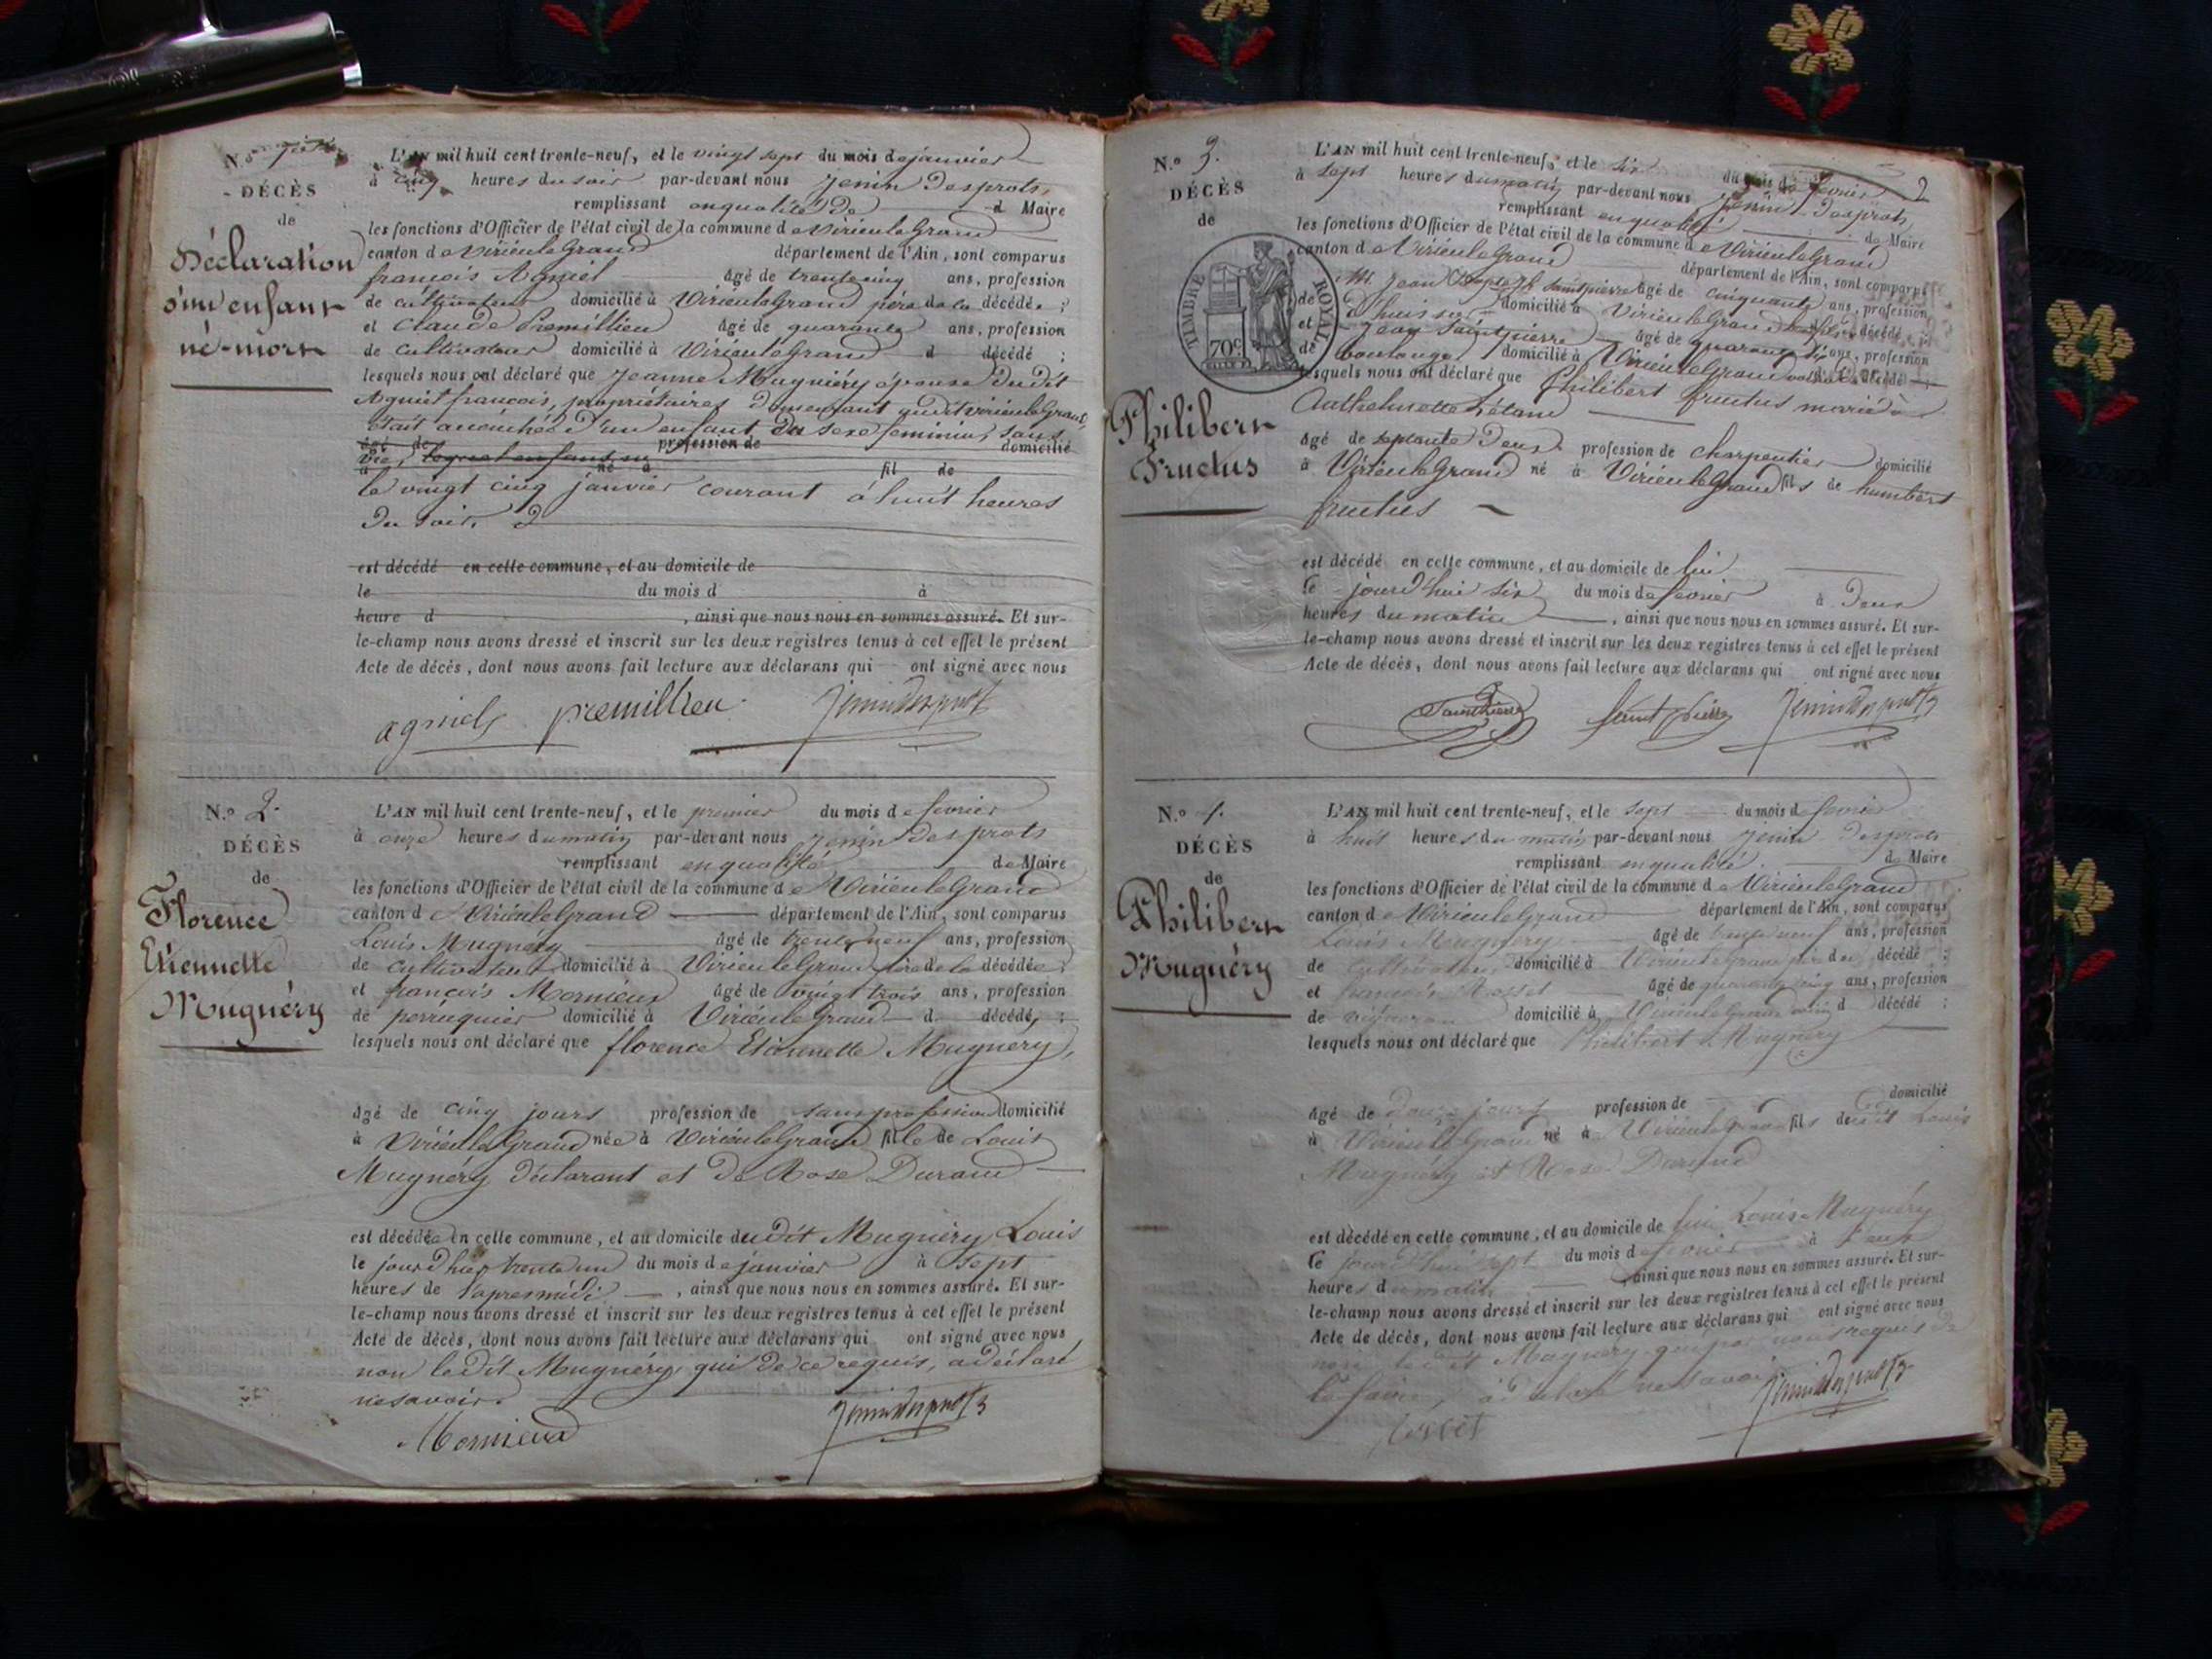 N.o premier
DÉCÈS
de
Déclaration
d'un enfant
né-mort
L'AN mil huit cent trente-neuf, et le vingt sept du mois de janvier
à cinq heures du soir par-devant nous Jenin Desprots,
remplissant en qualité de d Maire
les fonctions d'Officier de l'état civil de la commune de Virieu le Grand
canton de Virieu le Grand département de l'Ain, sont comparus
françois Agniel âgé de trente cinq ans, profession
de cultivateur domicilié à Virieu le Grand père de la décédée ;
et Claude Premillieu âgé de quarante ans, profession
de cultivateur domicilié à Virieu le Grand d décédé ;
lesquels nous ont déclaré que Jeanne Mugniéry épouse dudit
Agniel françois, propriétaires demeurant audit virieu le Grand,
était accouchée d'un enfant du sexe féminin, sans
âgé de profession de domicilié
vie, lequel enfant
à né à fil de
le vingt cinq janvier courant à huit heures
du soir.
est décédé en cette commune, et au domicile de
le du mois d à
heure d , ainsi que nous nous en sommes assuré. Et sur-
le-champ nous avons dressé et inscrit sur les deux registres tenus à cet effet le présent
Acte de décès, dont nous avons fait lecture aux déclarans qui ont signé avec nous
agniel premillieu Jenin Desprots
N.o 2.
DÉCÈS
de
Florence
Etiennette
Mugnéry
L'AN mil huit cent trente-neuf, et le premier du mois de fevrier
à onze heures du matin par-devant nous Jenin Desprots
remplissant en qualité de Maire
les fonctions d'Officier de l'état civil de la commune de Virieu le Grand
canton de Virieu le Grand département de l'Ain, sont comparus
Louis Mugnéry âgé de trente neuf ans, profession
de cultivateur domicilié à Virieu le Grand père de la décédée ;
et françois Mornieux âgé de vingt trois ans, profession
de perruquier domicilié à Virieu le Grand d décédé, ;
lesquels nous ont déclaré que florence Etiennette Mugnery,
âgé de cinq jours profession de sans profession domicilié
à Virieu le Grand née à Virieu le Grand fille de Louis
Mugnéry déclarant et de Rose Durand
est décédée en cette commune, et au domicile dudit Mugniéry Louis
le jour d'hier trente un du mois de janvier à sept
heures de l'apres midi , ainsi que nous nous en sommes assuré. Et sur-
le-champ nous avons dressé et inscrit sur les deux registres tenus à cet effet le présent
Acte de décès, dont nous avons fait lecture aux déclarans qui ont signé avec nous
non ledit Mugnéry qui de ce requis, a déclaré
ne savoir.
Mornieux Jenin Desprots
2
N.o 3.
DÉCÈS
de
TIMBRE ROYAL
70c
Philibert
Fructus
L'AN mil huit cent trente-neuf, et le six du mois de fevrier
à sept heures du matin par-devant nous Jenin Desprots,
remplissant en qualité de Maire
les fonctions d'Officier de l'état civil de la commune de Virieu le Grand
canton de Virieu le Grand département de l'Ain, sont comparus
M. Jean Joseph Saint pierre âgé de cinquante ans, profession
de d'huissier domicilié à Virieu le Grand décédé ;
et Jean Saint pierre âgé de quarante six ans, profession
de boulanger domicilié à Virieu le Grand décédé ;
lesquels nous ont déclaré que Philibert fructus marié à
Anthelmette
âgé de septante deux profession de charpentier domicilié
à Virieu le Grand né à Virieu le Grand fils de humbert
fructus
est décédé en cette commune, et au domicile de lui
le jourd'hui six du mois de fevrier à deux
heures du matin , ainsi que nous nous en sommes assuré. Et sur-
le-champ nous avons dressé et inscrit sur les deux registres tenus à cet effet le présent
Acte de décès, dont nous avons fait lecture aux déclarans qui ont signé avec nous
Saint Pierre Saint Pierre Jenin Desprots
N.o 4.
DÉCÈS
de
Philibert
Mugnéry
L'AN mil huit cent trente-neuf, et le sept du mois de fevrier
à huit heures du matin par-devant nous Jenin Desprots
remplissant en qualité de Maire
les fonctions d'Officier de l'état civil de la commune de Virieu le Grand
canton de Virieu le Grand département de l'Ain, sont comparus
Louis Mugnéry âgé de trente neuf ans, profession
de cultivateur domicilié à Virieu le Grand père du décédé ;
et françois Rosset âgé de quarante cinq ans, profession
de vigneron domicilié à Virieu le Grand voisin d décédé ;
lesquels nous ont déclaré que Philibert Mugnéry
âgé de douze jours profession de domicilié
à Virieu le Grand né à Virieu le Grand fils dudit Louis
Mugnéry et Rose Durand
est décédé en cette commune, et au domicile de lui Louis Mugnéry
le jourd'hui sept du mois de fevrier à deux
heures du matin , ainsi que nous nous en sommes assuré. Et sur-
le-champ nous avons dressé et inscrit sur les deux registres tenus à cet effet le présent
Acte de décès, dont nous avons fait lecture aux déclarans qui ont signé avec nous
non ledit Mugnéry qui par nous requis de
le faire, a déclaré ne savoir
Rosset Jenin Desprots